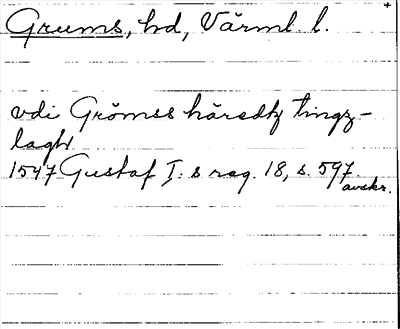 Grums, hd, Värml. l.
vdi Grömss häredtz tingz-
laghr
1547 Gustaf I:s reg. 18, s. 597.
avskr.